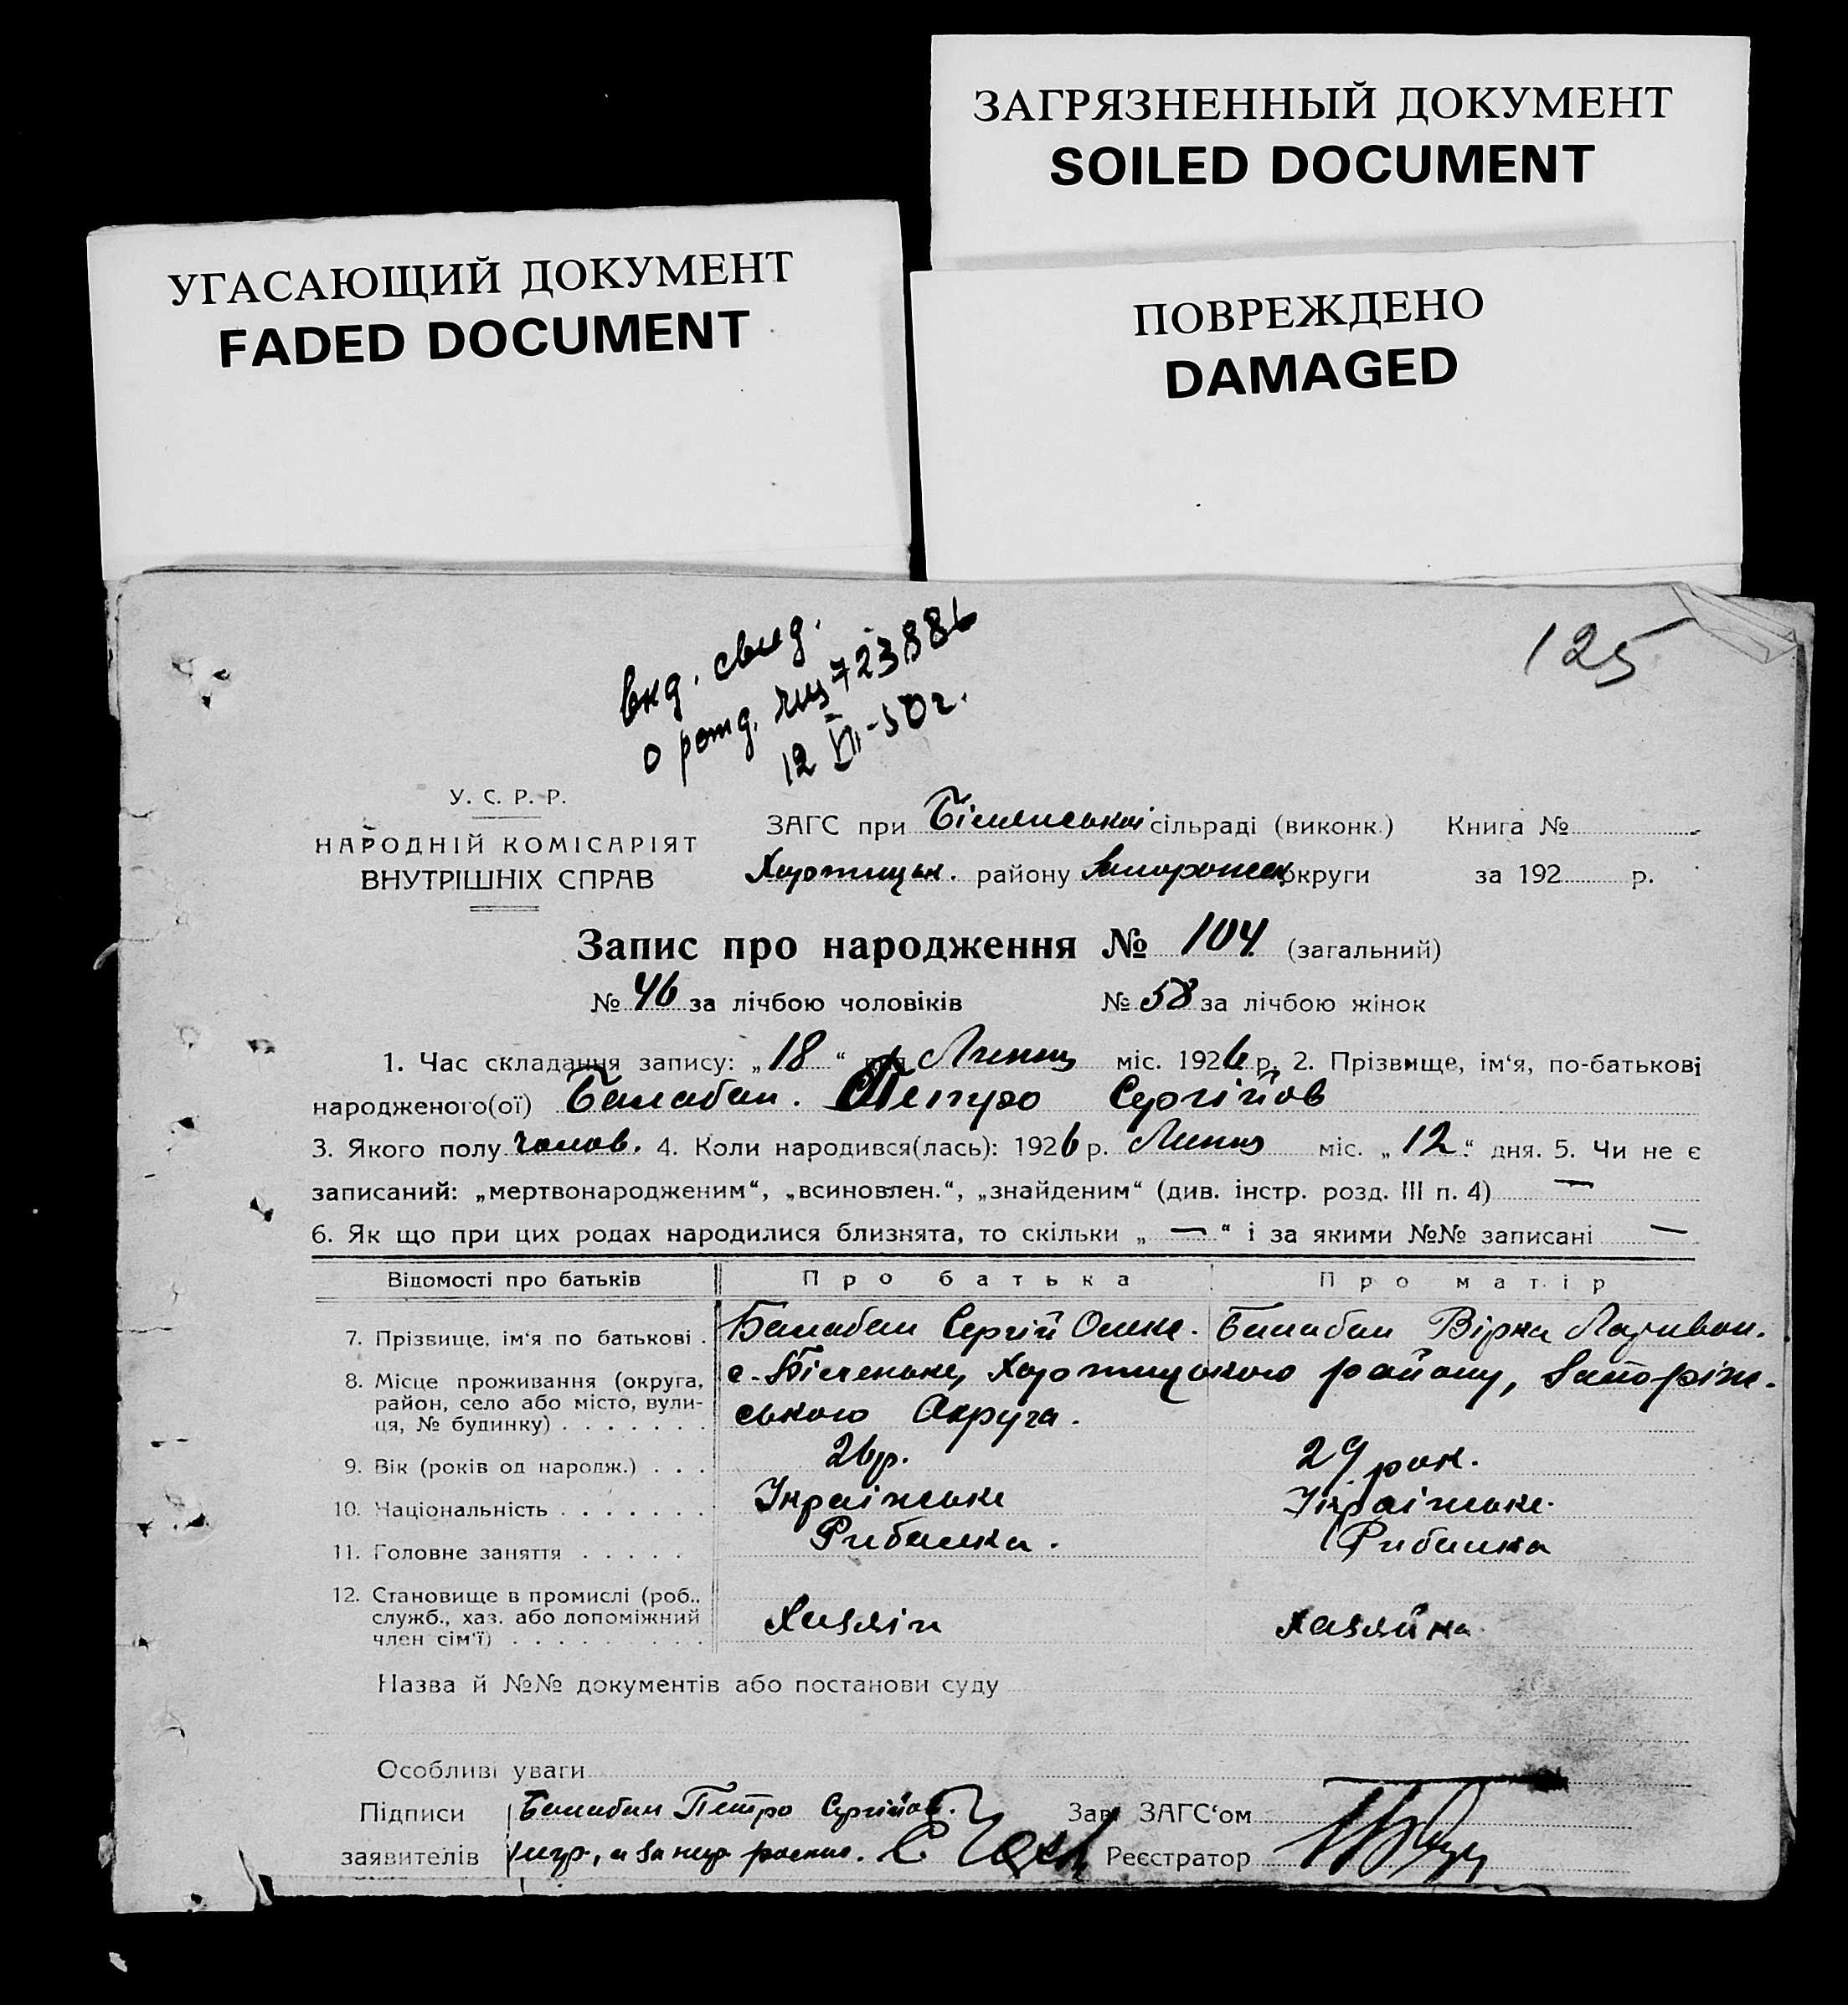 ЗАГРЯЗНЕННЫЙ ДОКУМЕНТ
SOILED DOCUMENT
УГАСАЮЩИЙ ДОКУМЕНТ
FADED DOCUMENT
ПОВРЕЖДЕНО
DAMAGED
125
выд. свид.
о рожд. 723886
12 VII-50 г.
У. С. Р. Р.
НАРОДНІЙ КОМІСАРІЯТ
ВНУТРІШНІХ СПРАВ
ЗАГС при Біленській сільраді (виконк.) Книга №
Хортицьк. району Запорожськ округи за 192 р.
Запис про народження № 104 (загальний)
№ 46 за лічбою чоловіків № 58 за лічбою жінок
1. Час складання запису: „18“ дня Липня міс. 1926 р. 2. Прізвище, ім‘я, по-батькові
народженого(ої) Балабан. Петро Сергійов
3. Якого полу чолов. 4. Коли народився(лась): 1926 р. Липня міс. „12“ дня. 5. Чи не є
записаний: „мертвонародженим“, „всиновлен.“, „знайденим“ (див. інстр. розд. III п. 4) —
6. Як що при цих родах народилися близнята, то скільки „—“ і за якими №№ записані —
Відомості про батьків Про батька Про матір
7. Прізвище, ім‘я по батькові . Балабан Сергій Олекс. Балабан Вірка Ларивон.
8. Місце проживання (округа, район, село або місто, вулиця, № будинку) . . . . . . . с. Біленьке, Хортицького району, Запоріж-
ського Округа.
9. Вік (років од народж.) . . . 26 р. 29 рок.
10. Національність . . . . . . . Українське Українське.
11. Головне заняття . . . . . Рибалка. Рибалка
12. Становище в промислі (роб., служб., хаз. або допоміжний член сім‘ї) . . . . . . . . Хазяїн Хазяйка
Назва й №№ документів або постанови суду
Особливі уваги
Підписи Балабан Петро Сергійов. Зав. ЗАГС‘ом
заявителів Реєстратор